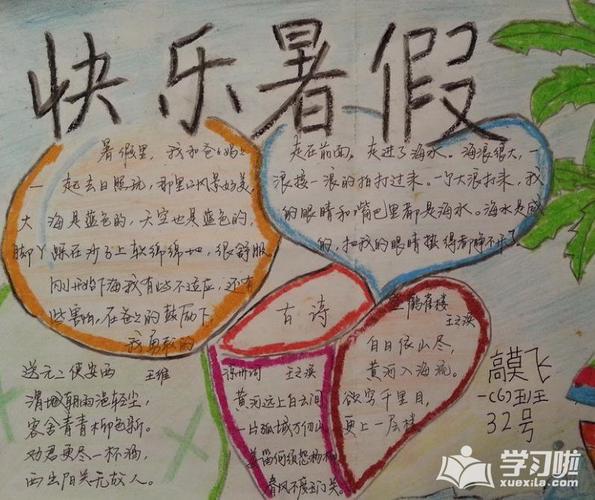 快乐暑假
暑假里,我和爸爸妈妈
一起去日照玩,那里的风景好美,
大海是蓝色的,天空也是蓝色的,
脚丫踩在沙子上软绵绵地,很舒服
刚开始下海我有些不适应,还有
些害怕,在爸爸的鼓励下
我勇敢的
走在前面。走进了海水。海浪很大,一
浪接一浪的拍打过来。一个大浪打来,我
的眼睛和嘴巴里都是海水。海水是咸
的,把我的眼睛
古诗
鹳雀楼
王之涣
白日依山尽,
黄河入海流。
欲穷千里目,
更上一层楼
送元二使安西 王维
渭城朝雨浥轻尘,
客舍青青柳色新。
劝君更尽一杯酒,
西出阳关无故人。
凉州词 王之涣
黄河远上白云间
一片孤城万仞山
羌笛何须怨杨柳
春风不度玉门关。
高莫飞
一(6)班
32号
学习啦
xuexila.com